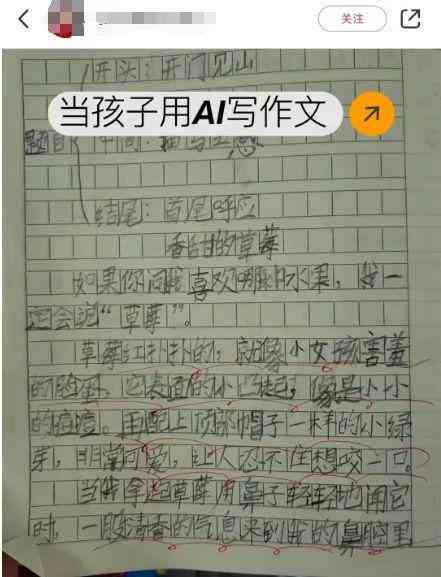 关注
开头：开门见山
当孩子用AI写作文
题目
中间：
结尾：首尾呼应
香甜的草莓
如果你问我喜欢哪种水果，我一
定会说“草莓”。
草莓红扑扑的，就像小女孩害羞
的脸蛋，它表面的小凸起，像是小小
的痘痘。再配上顶部帽子一样的小绿
芽，非常可爱，让人忍不住想咬一口。
当我拿起草莓用鼻子轻轻地闻它
时，一股清香的气息来到我的鼻腔里